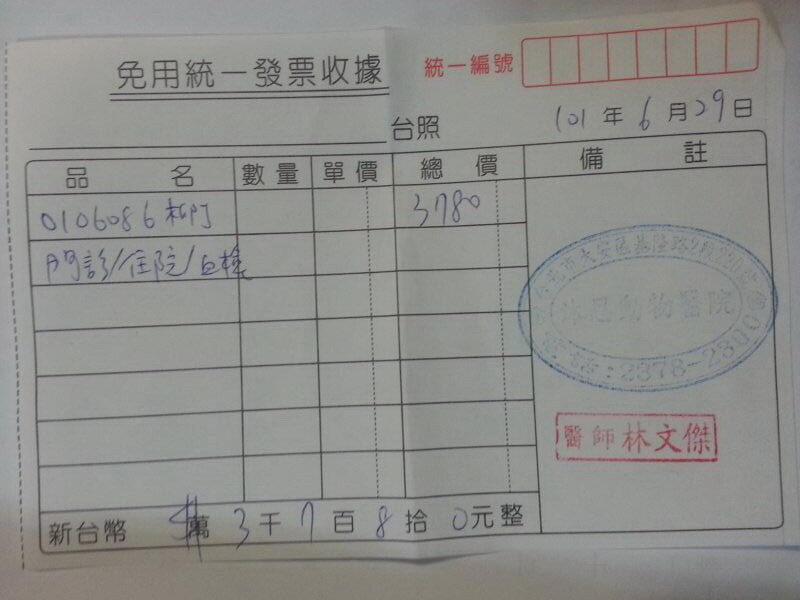 免用統一發票收據
統一編號
台照
101年6月29日
品名 數量 單價 總價 備註
0106086 3780
門診/住院/血檢
台北市大安區基隆路2段220號
沐思動物醫院
電話:2378-2300
醫師林文傑
新台幣 萬3千7百8拾0元整